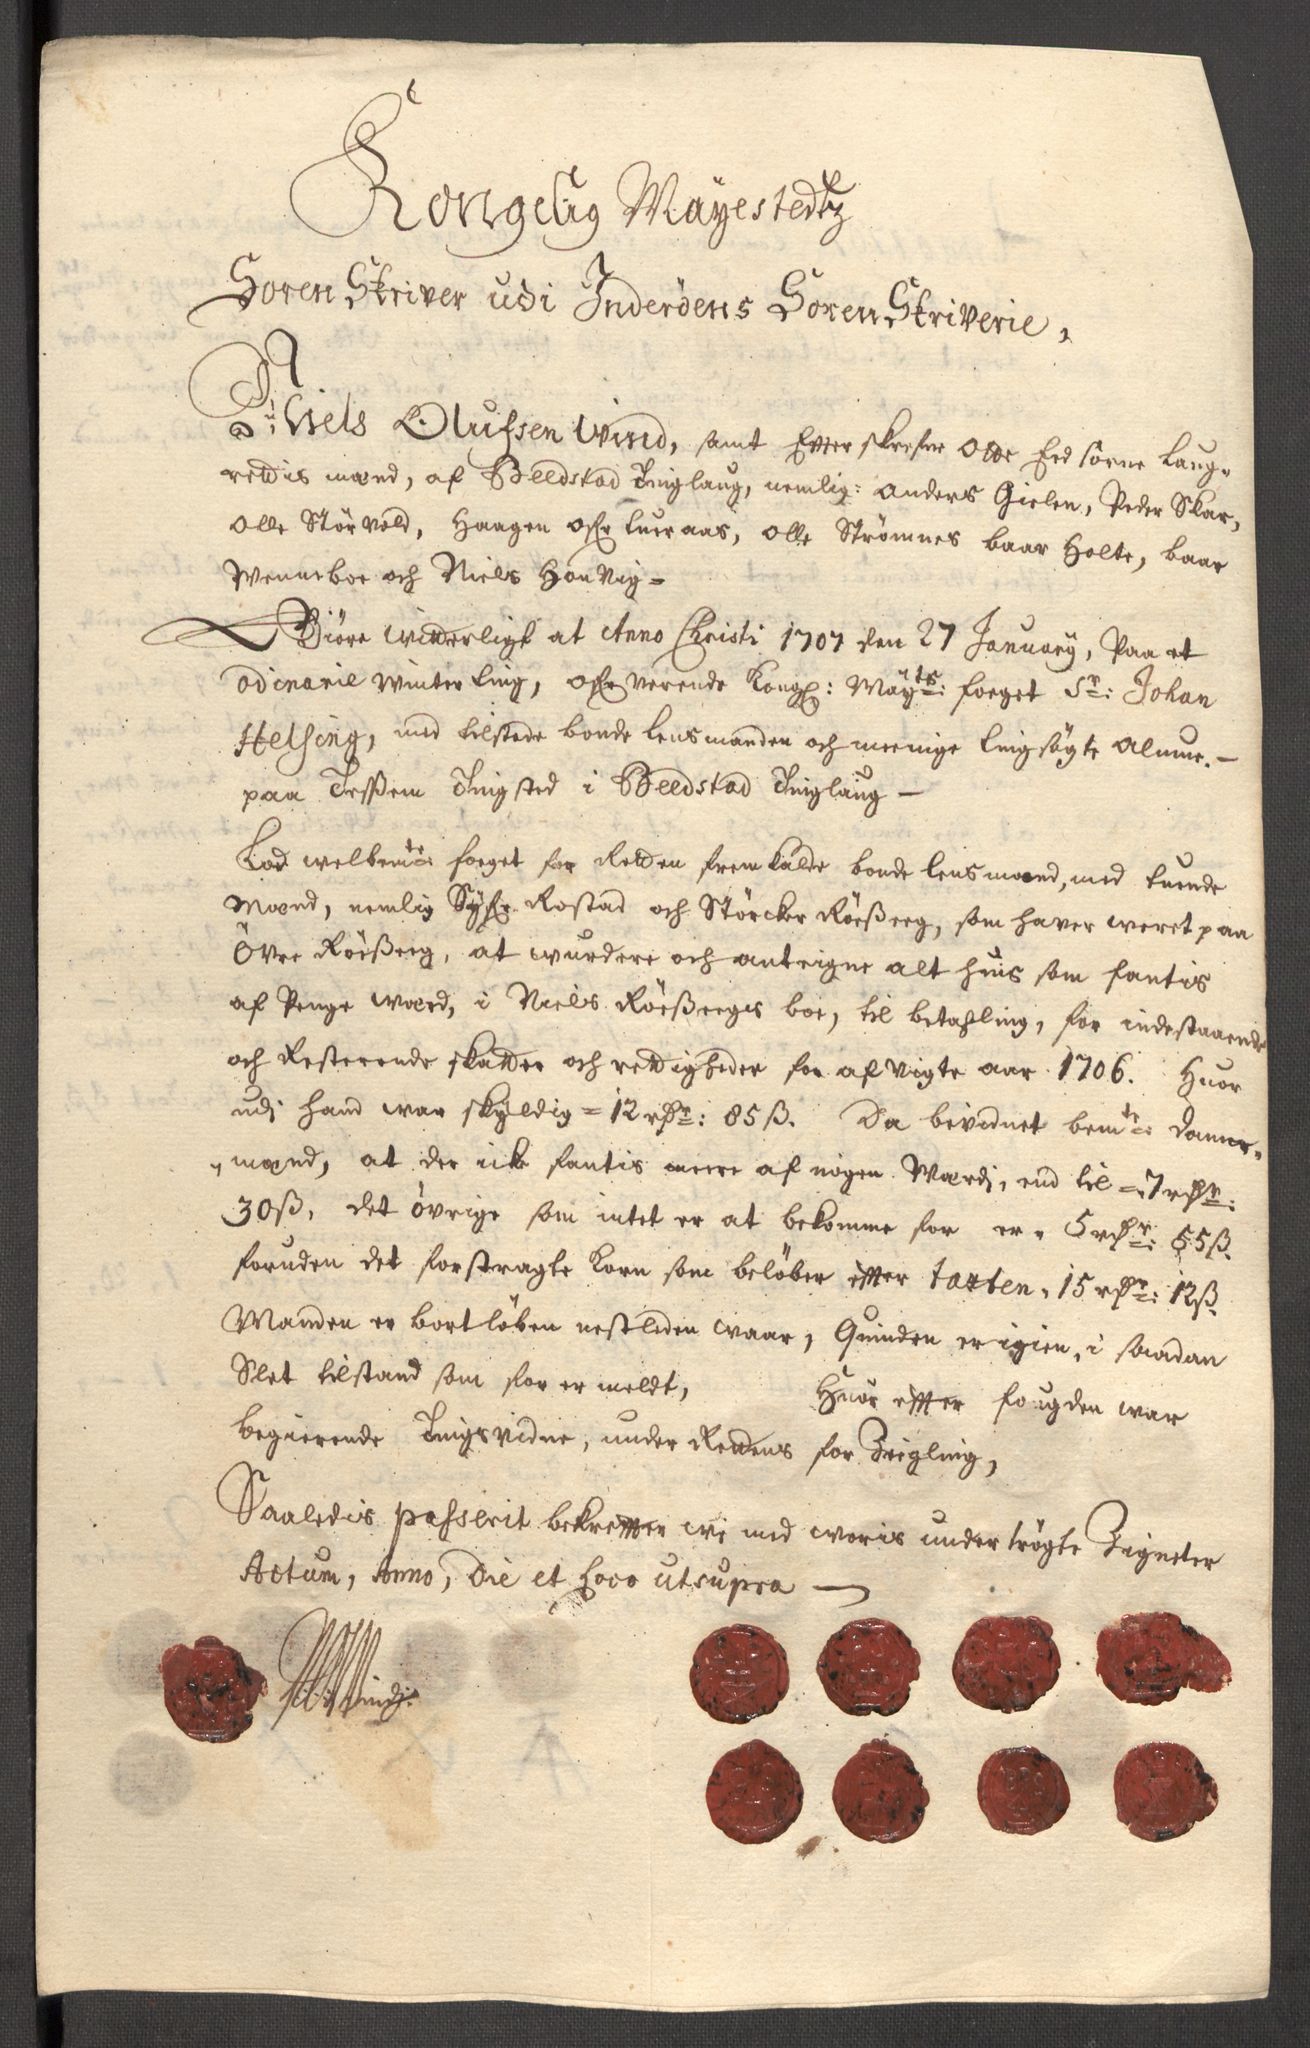 Kongelig Mäyestedtz
Soren Skriver udi Inderöens Soren Skriverie,
Niels Olufsen Wind, samt Efterskrefne Otte Eed sorne Laug-
rettis mænd, af Beedstad Tinglaug, nemlig: Anders Gielen, Peder Skar,
Olle Störvold, Haagen öfr Lueraas, Olle Strömnes baar Holte, baar
Wenneboe och Niels Honvig =
Giöre Witterligt at Anno Christi 1707 den 27 January, Paa et
odinarie Winter ting, ofr verende Kongl: Mäyts: foeget Sr: Johan
Helsing, med tilstede bonde lensmanden och meenige tingsögte Almue. -
paa Tessem Tingsted i Beedstad Tinglaug -
Lod welbemte: foeget for Retten fremkalde bonde lensmand, med tuende
Mænd, nemlig Syfr Rostad och Störcker Röeßeeg, som haver weret paa
Övre Röeßeeg, at wurdere och anteigne alt huis som fantis
af Penge Wærd, i Niels Röeßeegs boe, til betahling, for indestaaende
och Resterende skatter och rettigheder for afvigte aar 1706. Huor
udj hand war skyldig = 12 rdr: 85 ß. Da bevidnet bemte: Danne-
mænd, at der icke fantis meere af nogen Wærdj, end til = 7 rdr:
30 ß, det övrige som intet er at bekomme for er, 5 rdr: 55 ß.
foruden det forstragte Korn som belöber efter taxten, 15 rdr: 12 ß.
Manden er bortlöben nestleden waar, Quinden er igien, i saadan
Slet tilstand som for er meldt, Huor efter fougden war
begierende Tingsvidne, under Rettens for Zeigling,
Saaledis passerit bekrefter wj med woris undertrögte Zigneter
Actum, Anno, Die et Loco utsupra
NOWindj: